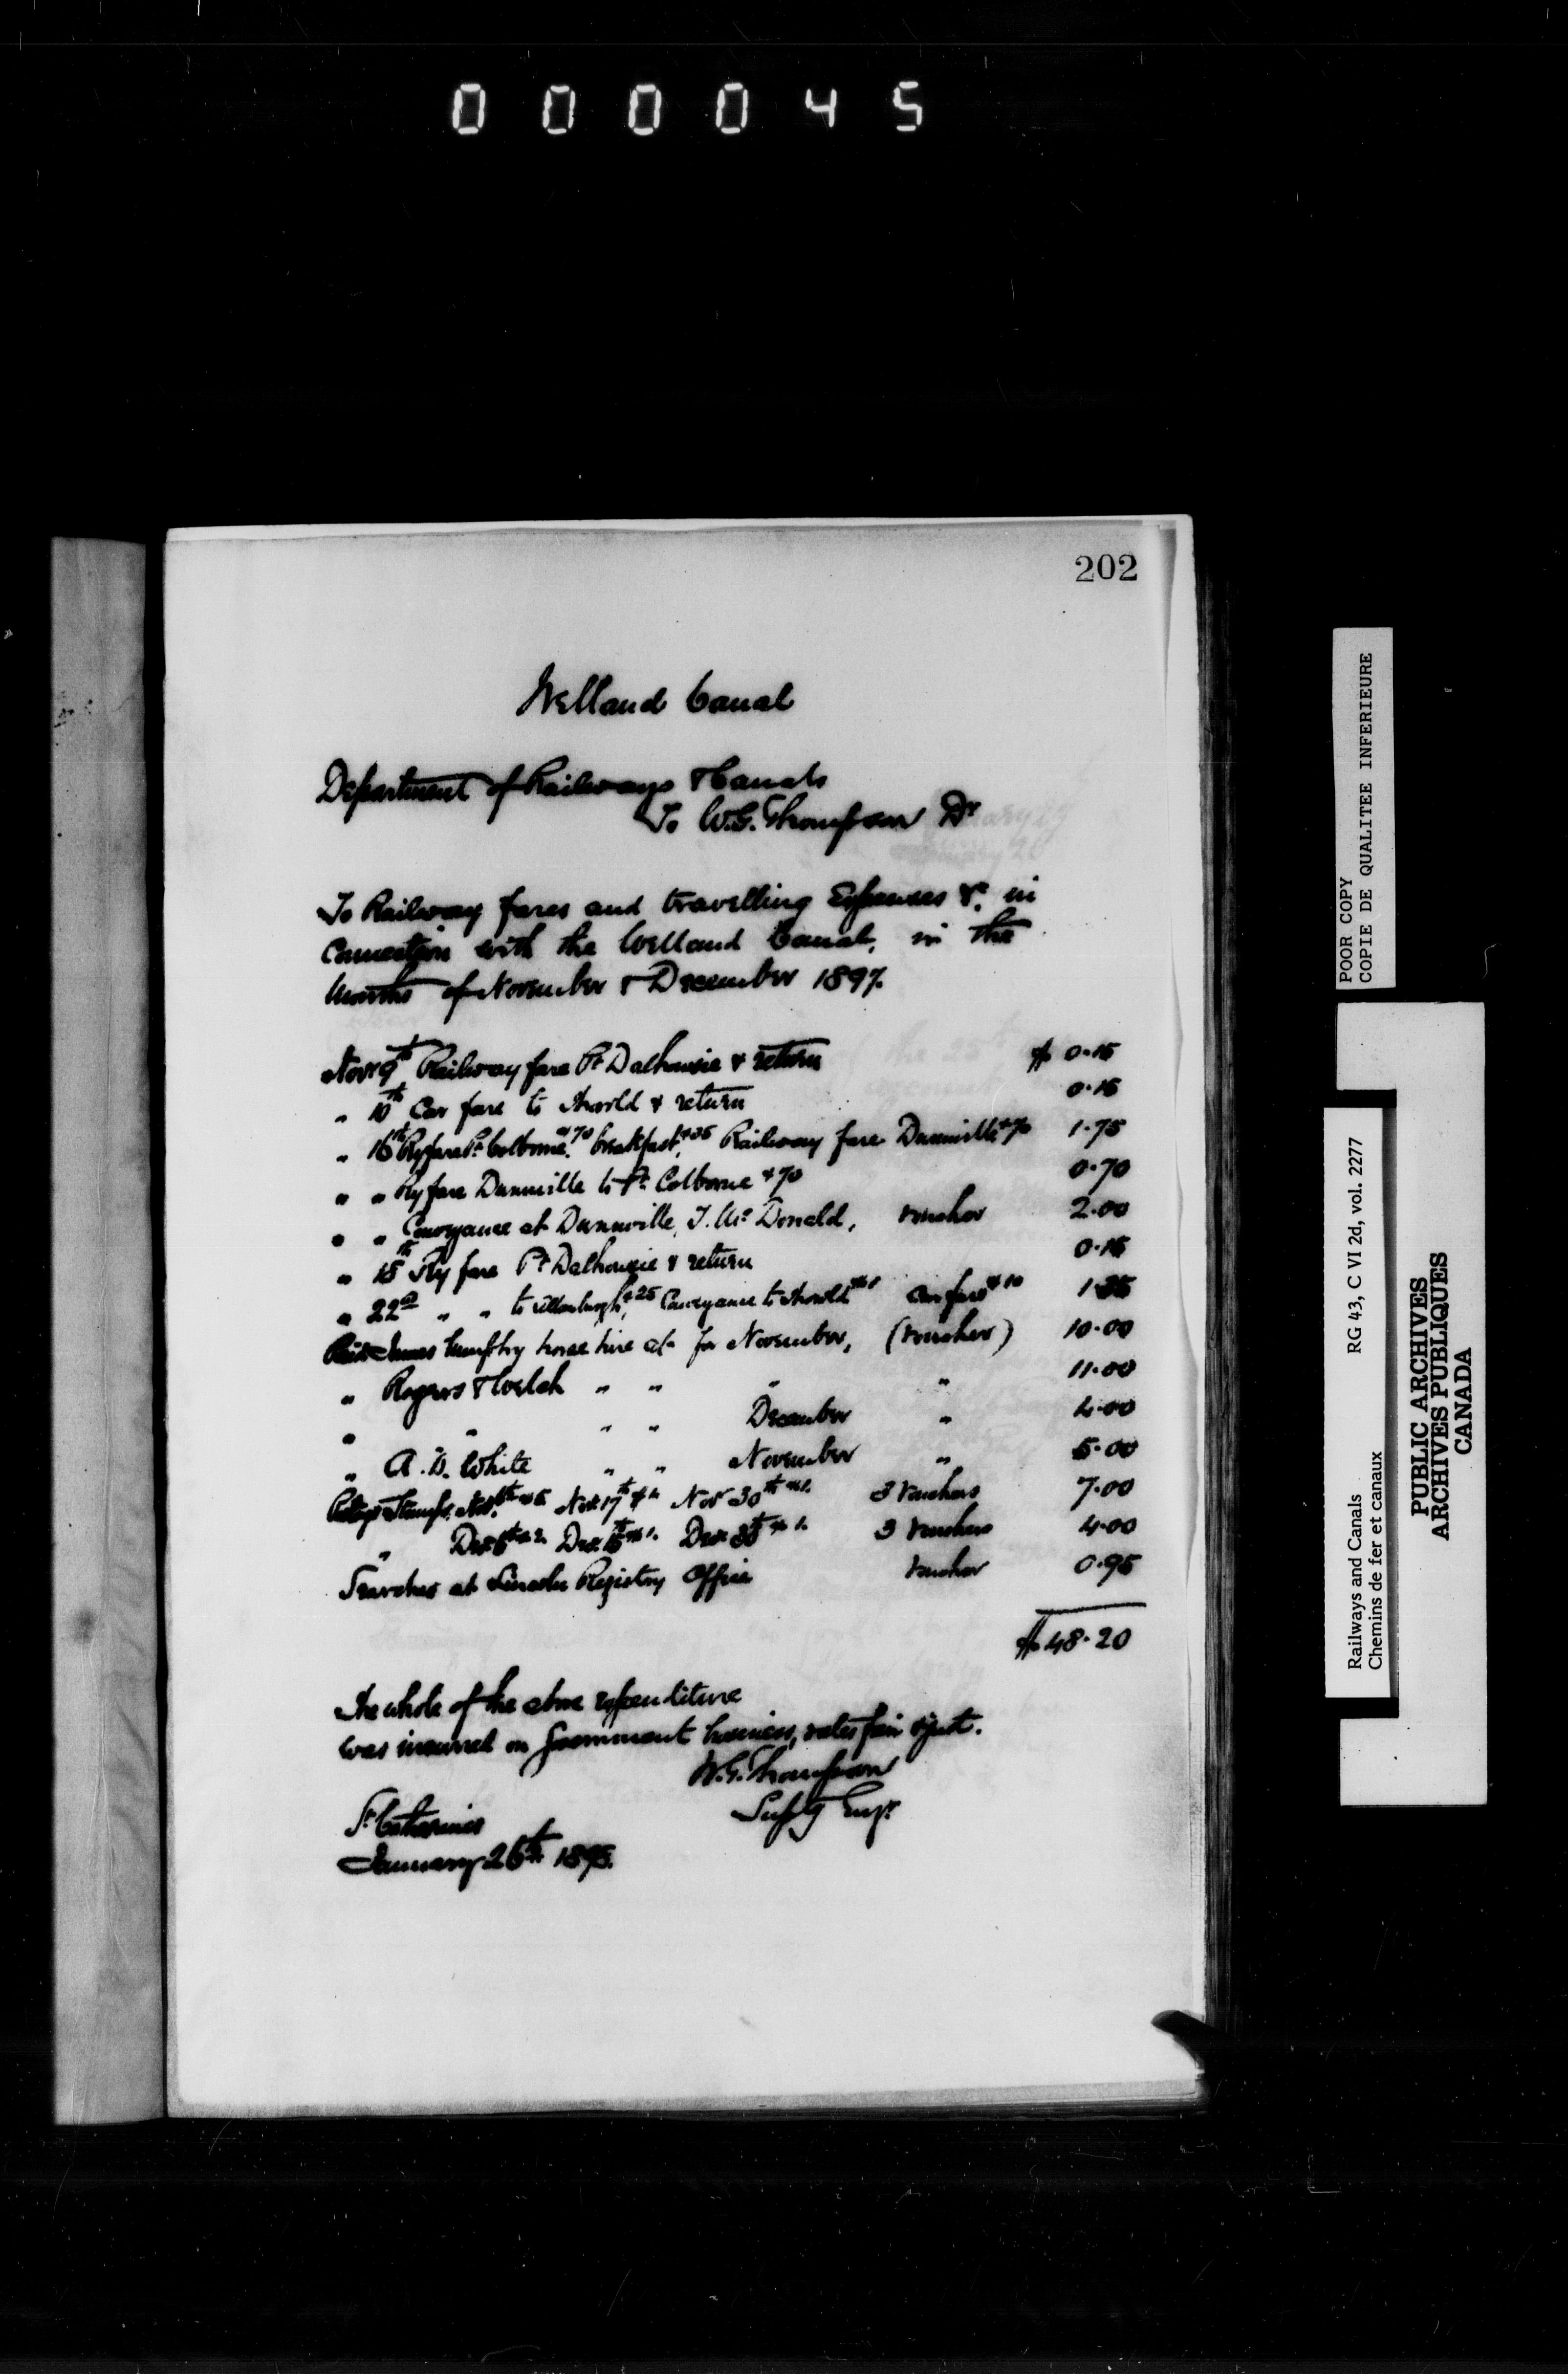 000045
202
Welland Canal
Department of Railways & Canals
To W.G. Thompson Dr
To Railway fares and travelling Expenses &c. in
Connection with the Welland Canal, in the
Months of November & December 1897.
Novr 9th Railway fare Pt Dalhousie & return $ 0.15
" 10th Car fare to Thorold & return 0.15
" 16th Ry fare Pt Colborne, 70 breakfast, 35 Railway fare Dunnville 70 1.75
" " Ry fare Dunnville to Pt Colborne 70 0.70
" " Conveyance at Dunnville, J. Mc Donald, voucher 2.00
" 18th Ry fare Pt Dalhousie & return 0.15
" 22nd " " to Allanburgh, 25 Conveyance to Thorold $1 Car fare 10 1.35
Paid James humfhry horse hire a/c for November, (voucher) 10.00
" Rogers & Welch " " " " 11.00
" " " " December " 4.00
" A.D. White " " November " 5.00
Postage Stamps, Nov. 6th $5 Nov 17th $1. Nov 30th $1. 3 Vouchers 7.00
" Dec. 6th $2. Dec. 15th $1. Dec. 30th $1. 3 Vouchers 4.00
Searches at Lincoln Registry Office voucher 0.95
$ 48.20
The whole of the above expenditure
was incurred on Government business, rates fair & just.
W.G. Thompson
Supt'g Engr
St Catharines
January 26th 1898.
POOR COPY
COPIE DE QUALITEE INFERIEURE
Railways and Canals RG 43, C VI 2d, vol. 2277
Chemins de fer et canaux
PUBLIC ARCHIVES
ARCHIVES PUBLIQUES
CANADA